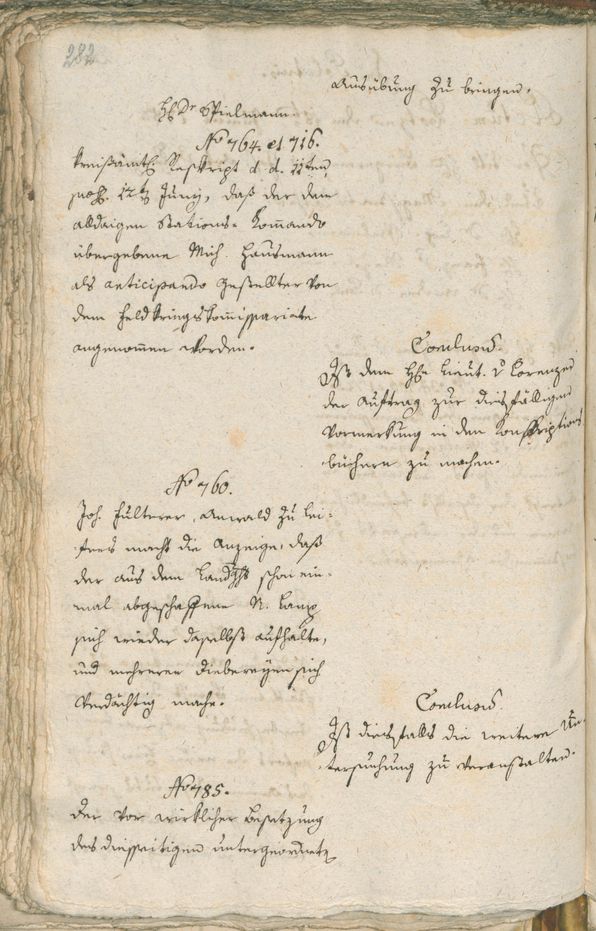 282
Ausübung zu bringen.
H. Dr. Spielmann
No 764. et 716.
Kreisämtl. Reskript d. d. 11ten
praes. 12ten Junÿ, daß der dem
alldaigen Stations-Komando
übergebene Mich. Hausmann
als anticipando gestellter von
dem Feldkriegskomissariate
angenomen worden.
Conclusum.
Ist dem H. Lieut. v. Lorenzen
der Auftrag zur diesfälligen
Vormerkung in den Konskriptions
büchern zu machen.
No 760.
Joh. Fulterer, Anwald zu Lei-
fers macht die Anzeige, daß
der aus dem Landght schon ein-
mal abgeschaffene N. Lanz
sich wieder daselbst aufhalte,
und mehrerer Diebereyen sich
verdächtig mache.
Conclusum.
Ist diesfalls die weitere Un-
tersuchung zu veranstalten.
No 785.
Der vor wirklicher Besetzung
des diesseitigen untergeordnete